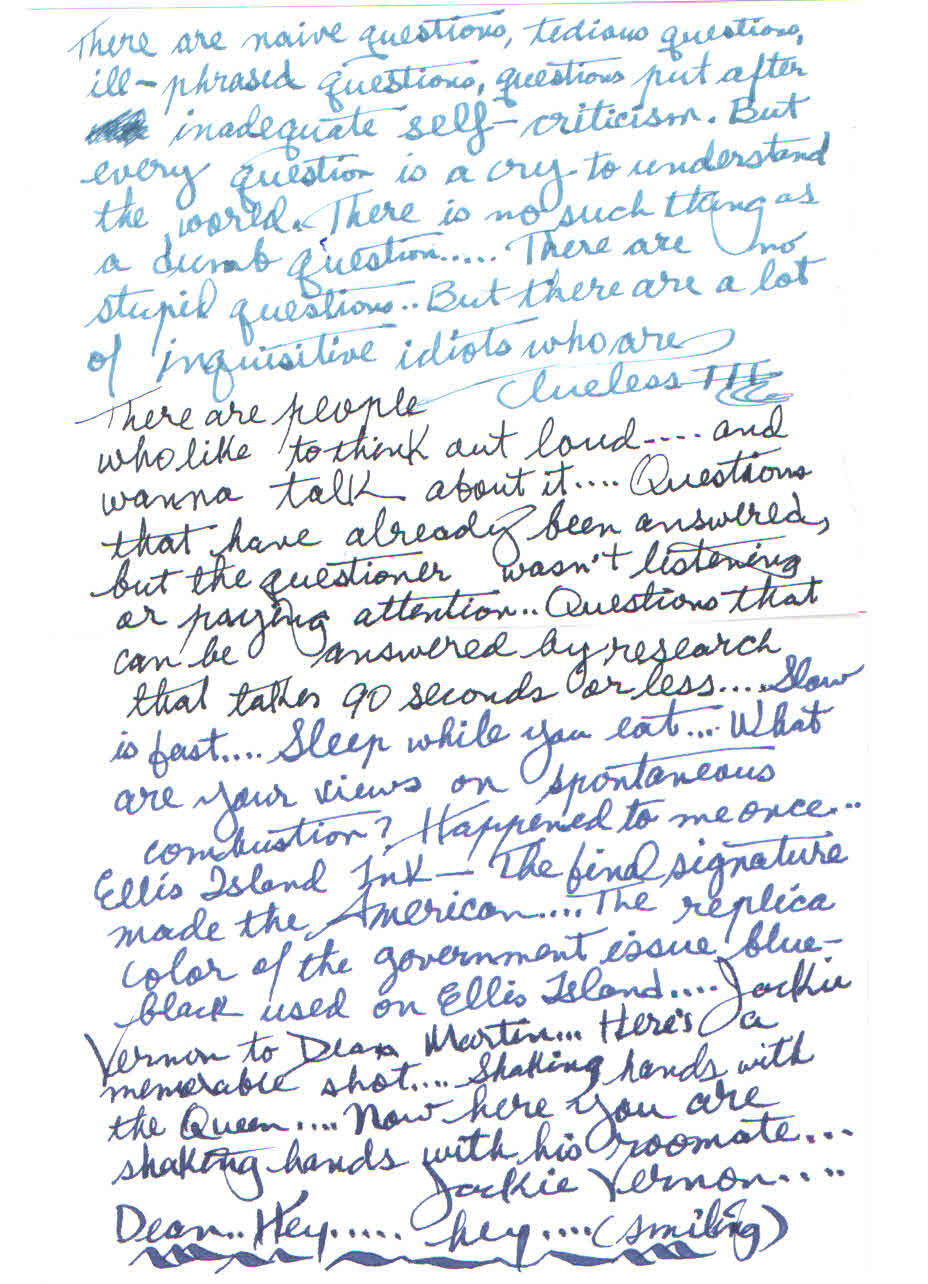 There are naive questions, tedious questions,
ill-phrased questions, questions put after
inadequate self-criticism. But
every question is a cry to understand
the world. There is no such thing as
a dumb question..... There are no
stupid questions.. But there are a lot
of inquisitive idiots who are
Clueless III
There are people
who like to think out loud.... and
wanna talk about it.... Questions
that have already been answered,
but the questioner wasn't listening
or paying attention.. Questions that
can be answered by research
that takes 90 seconds or less.... Slow
is fast.... Sleep while you eat.... What
are your views on spontaneous
combustion? Happened to me once...
Ellis Island Ink - The final signature
made the American.... The replica
color of the government issue blue-
black used on Ellis Island.... Jackie
Vernon to Dean Martin... Here's a
memorable shot.... Shaking hands with
the Queen.... Now here you are
shaking hands with his roomate...
Jackie Vernon....
Dean.. Hey..... hey.... (smiling)